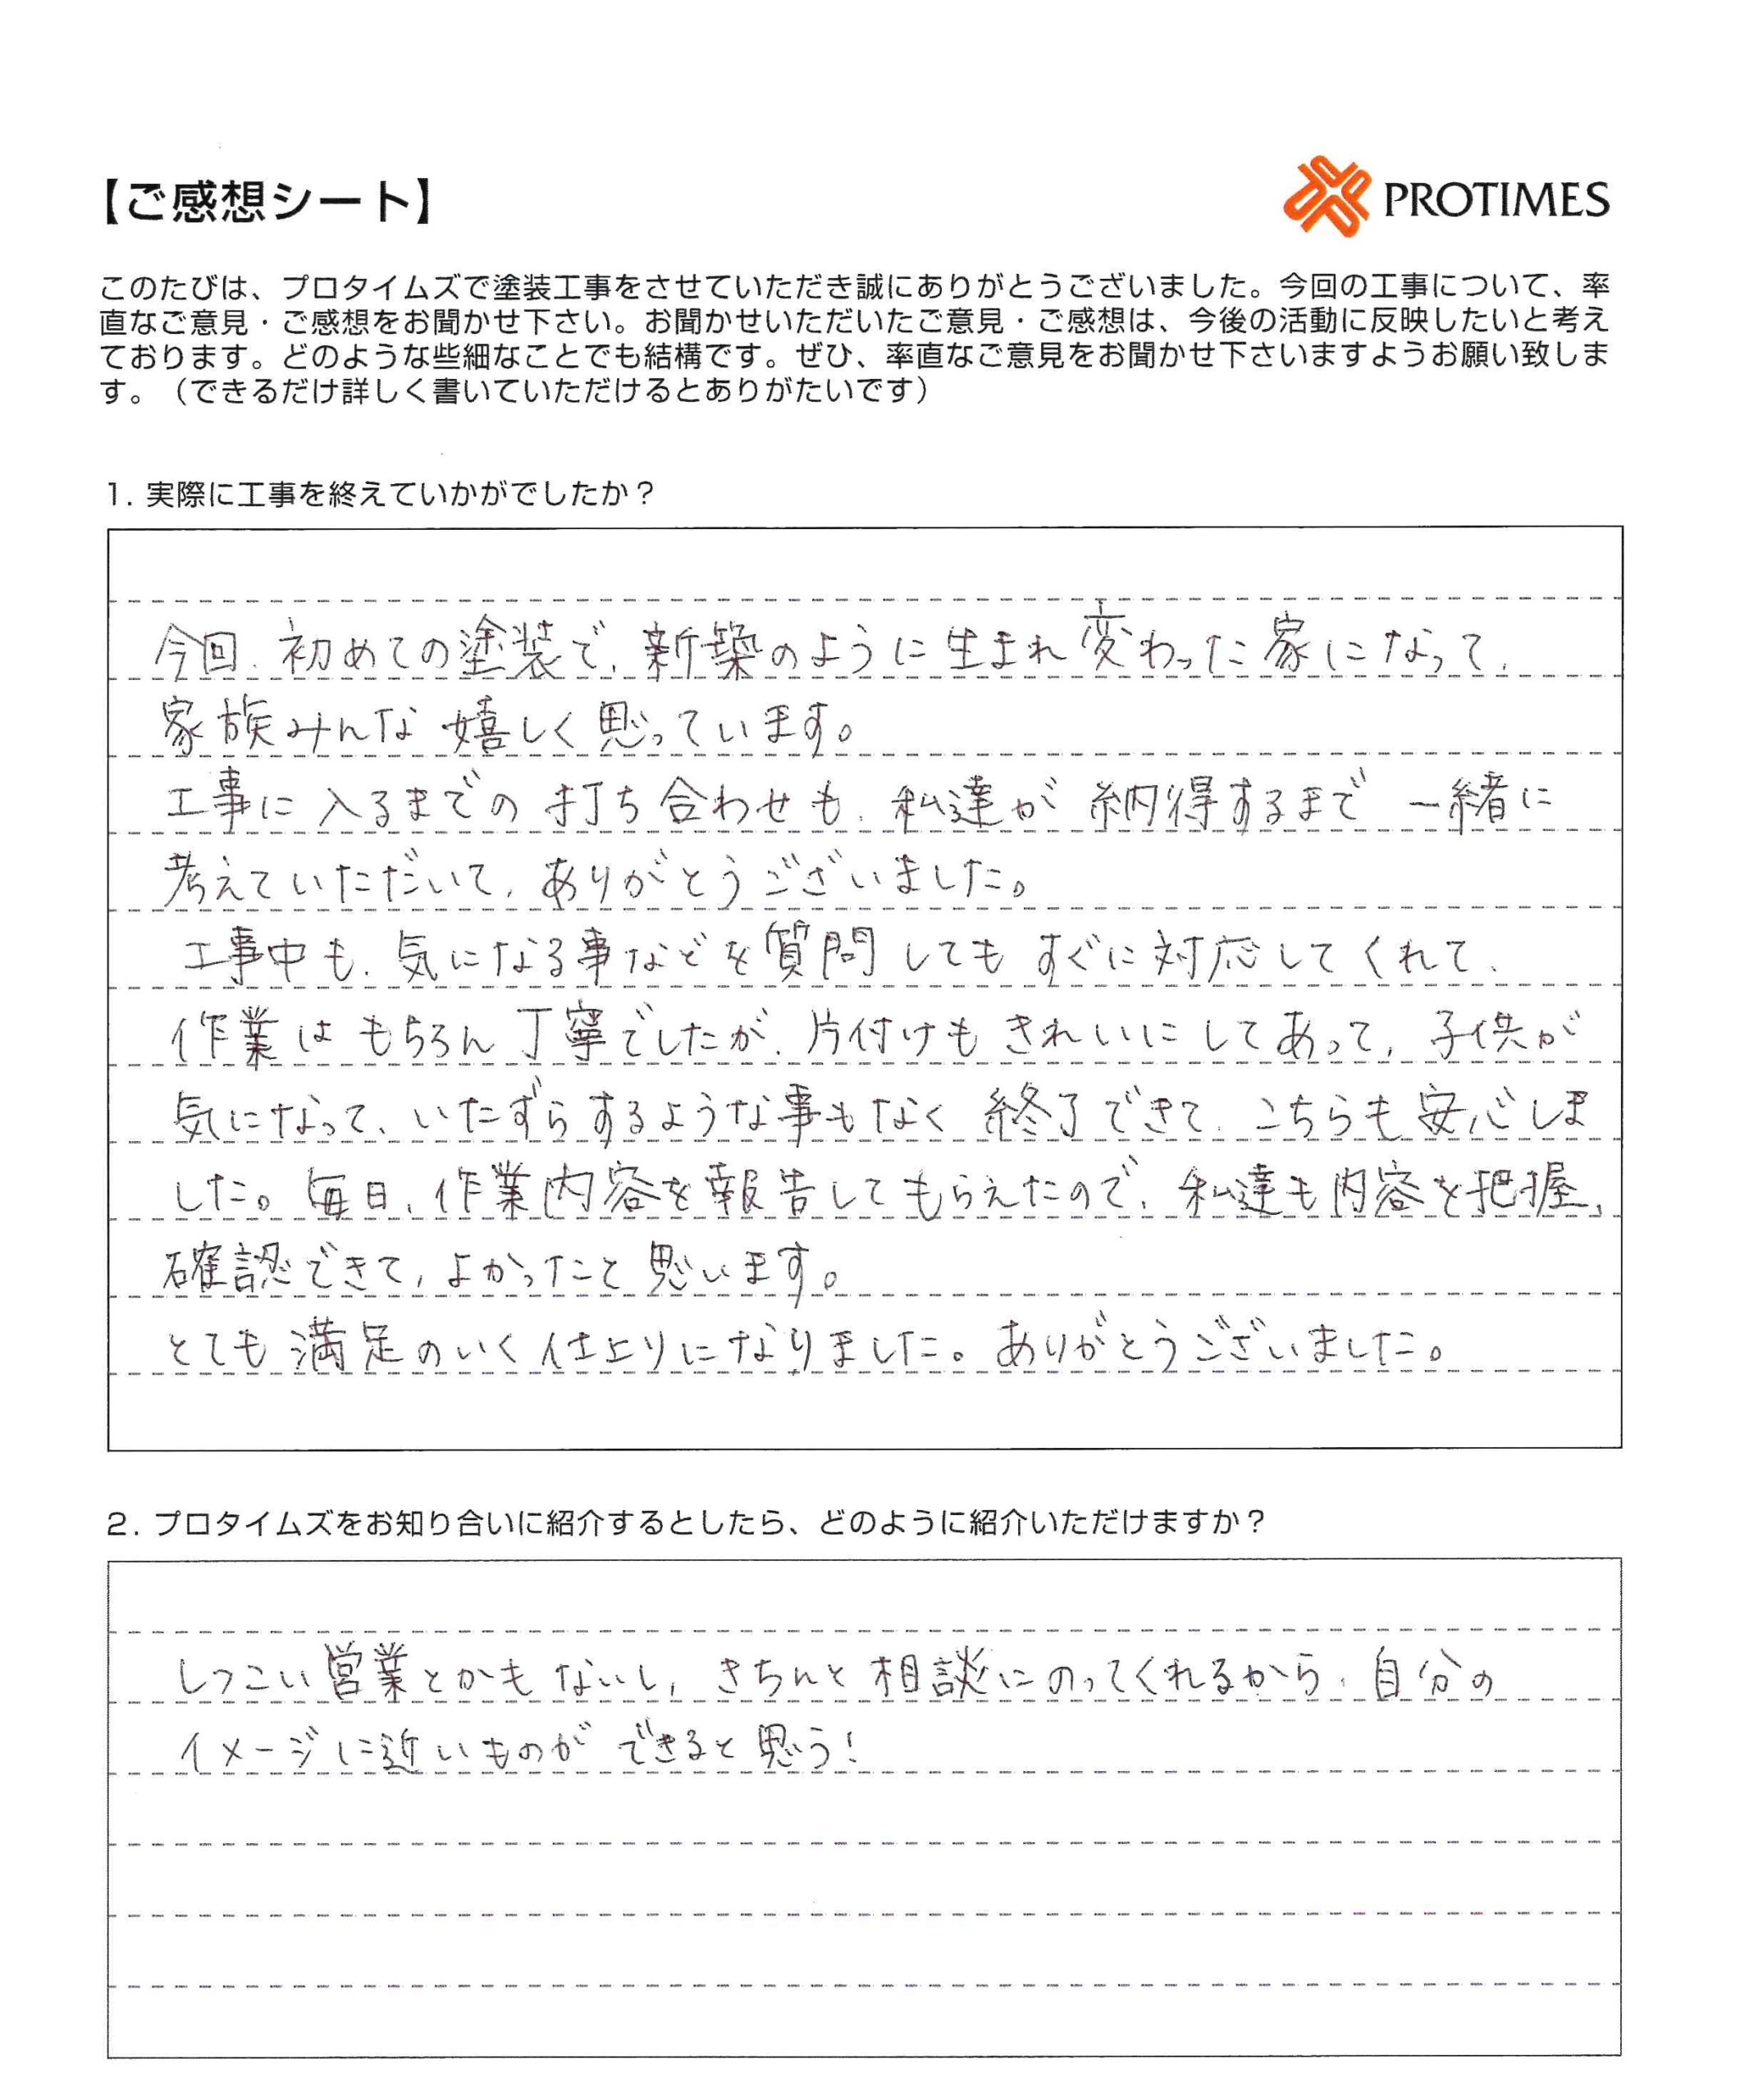 【ご感想シート】
PROTIMES
このたびは、プロタイムズで塗装工事をさせていただき誠にありがとうございました。今回の工事について、率
直なご意見・ご感想をお聞かせ下さい。お聞かせいただいたご意見・ご感想は、今後の活動に反映したいと考え
ております。どのような些細なことでも結構です。ぜひ、率直なご意見をお聞かせ下さいますようお願い致しま
す。（できるだけ詳しく書いていただけるとありがたいです）
1. 実際に工事を終えていかがでしたか？
今回、初めての塗装で、新築のように生まれ変わった家になって、
家族みんな嬉しく思っています。
工事に入るまでの打ち合わせも、私達が納得するまで一緒に
考えていただいて、ありがとうございました。
工事中も、気になる事などを質問してもすぐに対応してくれて、
作業はもちろん丁寧でしたが、片付けもきれいにしてあって、子供が
気になって、いたずらするような事もなく終了できて、こちらも安心しま
した。毎日、作業内容を報告してもらえたので、私達も内容を把握、
確認できて、よかったと思います。
とても満足のいく仕上りになりました。ありがとうございました。
2. プロタイムズをお知り合いに紹介するとしたら、どのように紹介いただけますか？
しつこい営業とかもないし、きちんと相談にのってくれるから、自分の
イメージに近いものができると思う！